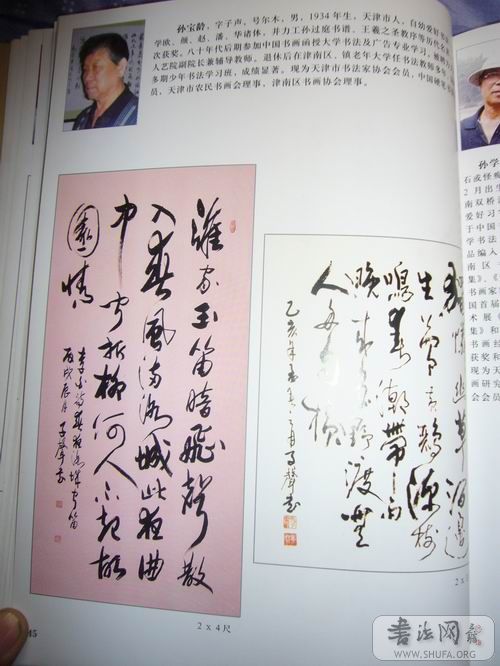 孙宝龄,字子声,号尔木,男,1934年生,天津市人,自幼爱好书
学欧、颜、赵、潘、华诸体,并力工孙过庭书谱、王羲之圣教序等历代名
次获奖。八十年代后期参加中国书画函授大学书法及广告专业学习
人艺院副院长兼辅导教师。退休后在津南区、镇老年大学任书法教师多年
多期少年书法学习班,成绩显著。现为天津市书法家协会会员,中国硬笔书
员,天津市农民书画会理事,津南区书画协会理事。
谁家玉笛暗飞声散
入春风满洛城此夜曲
中闻折柳何人不起故
园情
李白诗春夜洛城闻笛
丙戌辰月子声书
独怜幽草涧边
生上有黄鹂深树
鸣春潮带雨
晚来急野渡无
人舟自横
2×4尺
2×
45
孙学
石或怪
2月出生
南双桥
爱好习
于中国
学书法
品编入
津南区
集》、《
书画家
国首届
术展《
集》和
书画经
获奖和
现为天
画研究
会会员
书法网
WWW.SHUFA.ORG